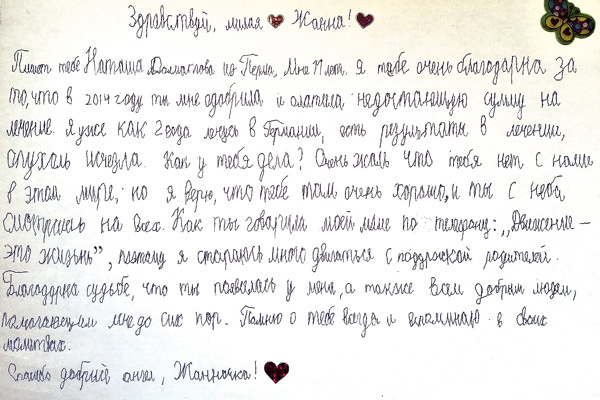 Здравствуй, милая Жанна!
Пишет тебе Наташа из Перми, Мне 11 лет. Я тебе очень благодарна за
то, что в 2014 году ты мне одобрила и оплатила недостающую сумму на
лечение. Я уже как 2 года лечусь в Германии, есть результаты в лечении,
опухоль исчезла. Как у тебя дела? Очень жаль что тебя нет с нами
в этом мире, но я верю, что тебе там очень хорошо, и ты с неба
смотришь на всех. Как ты говорила моей маме по телефону: „Движение –
это жизнь”, поэтому я стараюсь много двигаться с поддержкой родителей.
Благодарна судьбе, что ты появилась у меня, а также всем добрым людям,
помогающим мне до сих пор. Помню о тебе всегда и вспоминаю в своих
молитвах.
Спасибо добрый ангел, Жанночка!